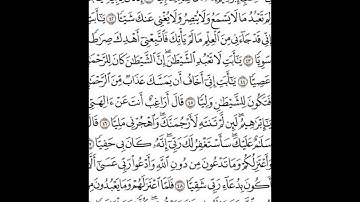 لِمَ تَعْبُدُ مَا لَا يَسْمَعُ وَلَا يُبْصِرُ وَلَا يُغْنِى عَنكَ شَيْـًٔا ٤٢ يَـٰٓأَبَتِ
إِنِّى قَدْ جَآءَنِى مِنَ ٱلْعِلْمِ مَا لَمْ يَأْتِكَ فَٱتَّبِعْنِىٓ أَهْدِكَ صِرَٰطًا
سَوِيًّا ٤٣ يَـٰٓأَبَتِ لَا تَعْبُدِ ٱلشَّيْطَـٰنَ ۖ إِنَّ ٱلشَّيْطَـٰنَ كَانَ لِلرَّحْمَـٰنِ
عَصِيًّا ٤٤ يَـٰٓأَبَتِ إِنِّىٓ أَخَافُ أَن يَمَسَّكَ عَذَابٌ مِّنَ ٱلرَّحْمَـٰنِ
فَتَكُونَ لِلشَّيْطَـٰنِ وَلِيًّا ٤٥ قَالَ أَرَاغِبٌ أَنتَ عَنْ ءَالِهَتِى
يَـٰٓإِبْرَٰهِيمُ ۖ لَئِن لَّمْ تَنتَهِ لَأَرْجُمَنَّكَ ۖ وَٱهْجُرْنِى مَلِيًّا ٤٦ قَالَ
سَلَـٰمٌ عَلَيْكَ ۖ سَأَسْتَغْفِرُ لَكَ رَبِّىٓ ۖ إِنَّهُۥ كَانَ بِى حَفِيًّا ٤٧
وَأَعْتَزِلُكُمْ وَمَا تَدْعُونَ مِن دُونِ ٱللَّهِ وَأَدْعُوا۟ رَبِّى عَسَىٰٓ أَلَّآ
أَكُونَ بِدُعَآءِ رَبِّى شَقِيًّا ٤٨ فَلَمَّا ٱعْتَزَلَهُمْ وَمَا يَعْبُدُونَ مِن